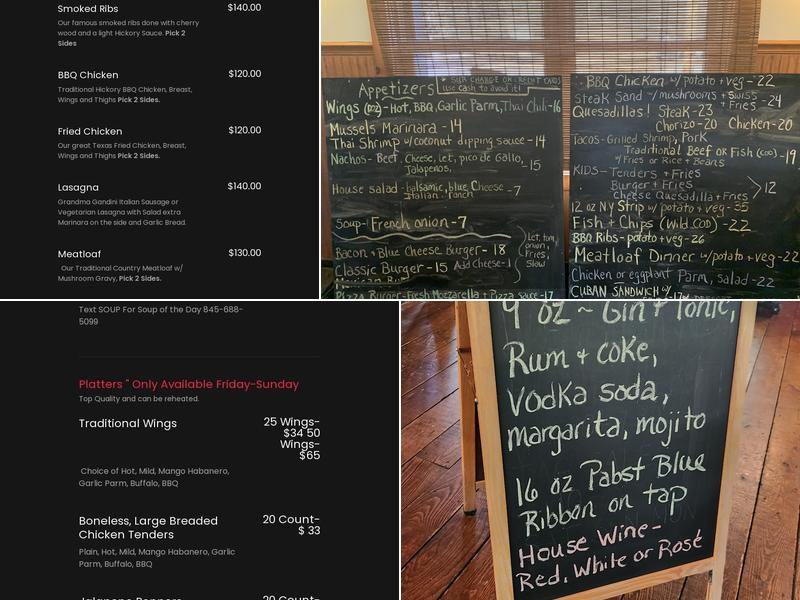 Smoked Ribs
$140.00
Our famous smoked ribs done with cherry
wood and a light Hickory Sauce. Pick 2
Sides
BBQ Chicken
$120.00
Traditional Hickory BBQ Chicken, Breast,
Wings and Thighs Pick 2 Sides.
Fried Chicken
$120.00
Our great Texas Fried Chicken, Breast,
Wings and Thighs Pick 2 Sides.
Lasagna
$140.00
Grandma Gandini Italian Sausage or
Vegetarian Lasagna with Salad extra
Marinara on the side and Garlic Bread.
Meatloaf
$130.00
Our Traditional Country Meatloaf w/
Mushroom Gravy, Pick 2 Sides.
Appetizers
* SUR CHARGE ON CREDIT CARDS
use cash to avoid it!
Wings (10z)-Hot, BBQ, Garlic Parm, Thai Chili-16
Mussels Marinara - 14
Thai Shrimp w/coconut dipping sauce - 14
Nachos - Beef, Cheese, let, pico de Gallo,
Jalapenos, - 15
House salad - balsamic, blue Cheese
Italian, ranch - 7
Soup - French onion - 7
Bacon + Blue Cheese Burger - 18
Classic Burger - 15 Add Cheese-1
Let, tom,
onion,
Fries,
Slaw
Mexican
Pizza Burger - Fresh Mozzarella + Pizza Sauce - 17
BBQ Chicken w/potato + veg - 22
Steak Sand w/ mushrooms + swiss
+ Fries - 24
Quesadillas! Steak - 23
Chorizo - 20 Chicken - 20
Tacos - Grilled Shrimp, Pork
Traditional Beef or Fish (COD) - 19
w/ Fries or Rice + Beans
KIDS - Tenders + Fries
Burger + Fries
Cheese Quesadilla + Fries
12
12 oz NY Strip w/ potato + veg - 35
Fish + Chips (Wild COD) - 22
BBQ Ribs - potato + veg - 26
Meatloaf Dinner w/potato + veg - 22
Chicken or eggplant Parm, salad - 22
CUBAN SANDWICH w/
Text SOUP For Soup of the Day 845-688-
5099
Platters " Only Available Friday-Sunday
Top Quality and can be reheated.
Traditional Wings
25 Wings-
$34 50
Wings-
$65
Choice of Hot, Mild, Mango Habanero,
Garlic Parm, Buffalo, BBQ
Boneless, Large Breaded
Chicken Tenders
20 Count-
$ 33
Plain, Hot, Mild, Mango Habanero, Garlic
Parm, Buffalo, BBQ
Jalapeno Poppers
20 Count-
9 oz ~ Gin + Tonic,
Rum + coke,
Vodka soda,
margarita, mojito
16 oz Pabst Blue
Ribbon on tap
House Wine -
Red, White or Rosé